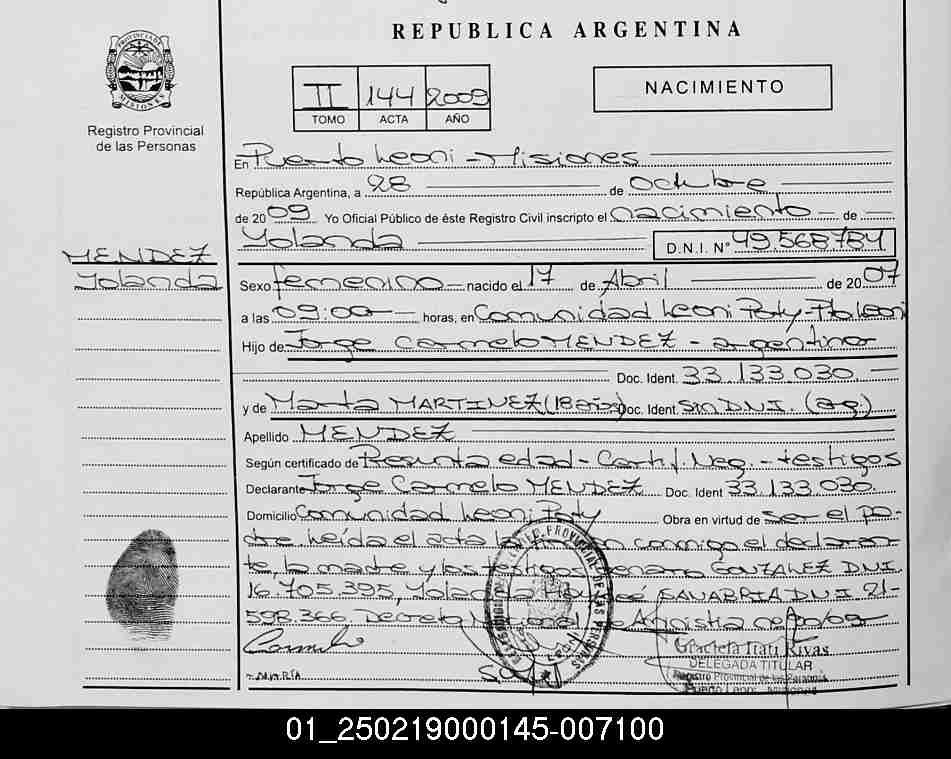 REPUBLICA ARGENTINA
PROVINCIA DE MISIONES
Registro Provincial
de las Personas
II 144 2009
TOMO ACTA AÑO
NACIMIENTO
En Puerto Leoni - Misiones
República Argentina, a 28 de Octubre
de 2009 Yo Oficial Público de éste Registro Civil inscripto el nacimiento de
Yolanda D.N.I. N° 49.568784
MENDEZ
Yolanda
Sexo femenino nacido el 17 de Abril de 2007
a las 09:00 horas, en Comunidad Leoni Poty - Pto Leoni
Hijo de Jorge Carmelo MENDEZ - argentino
Doc. Ident. 33.133.030.
y de Marta MARTINEZ (18 años) Doc. Ident. sin D.N.I. (arg)
Apellido MENDEZ
Según certificado de Presunta edad - Certif. Neg. - testigos
Declarante Jorge Carmelo MENDEZ Doc. Ident 33.133.030.
Domicilio Comunidad Leoni Poty Obra en virtud de ser el pa-
dre. Leída el acta la conmigo el declaran-
te, la madre y los testigos GONZALEZ D.N.I.
16.705.395, Yolanda SANABRIA D.N.I. 21-
598.366. Decreto Nacional de Amnistia
Carmelo
Graciela Itatí Rivas
DELEGADA TITULAR
Registro Provincial de las Personas
Puerto Leoni - Misiones
01_250219000145-007100